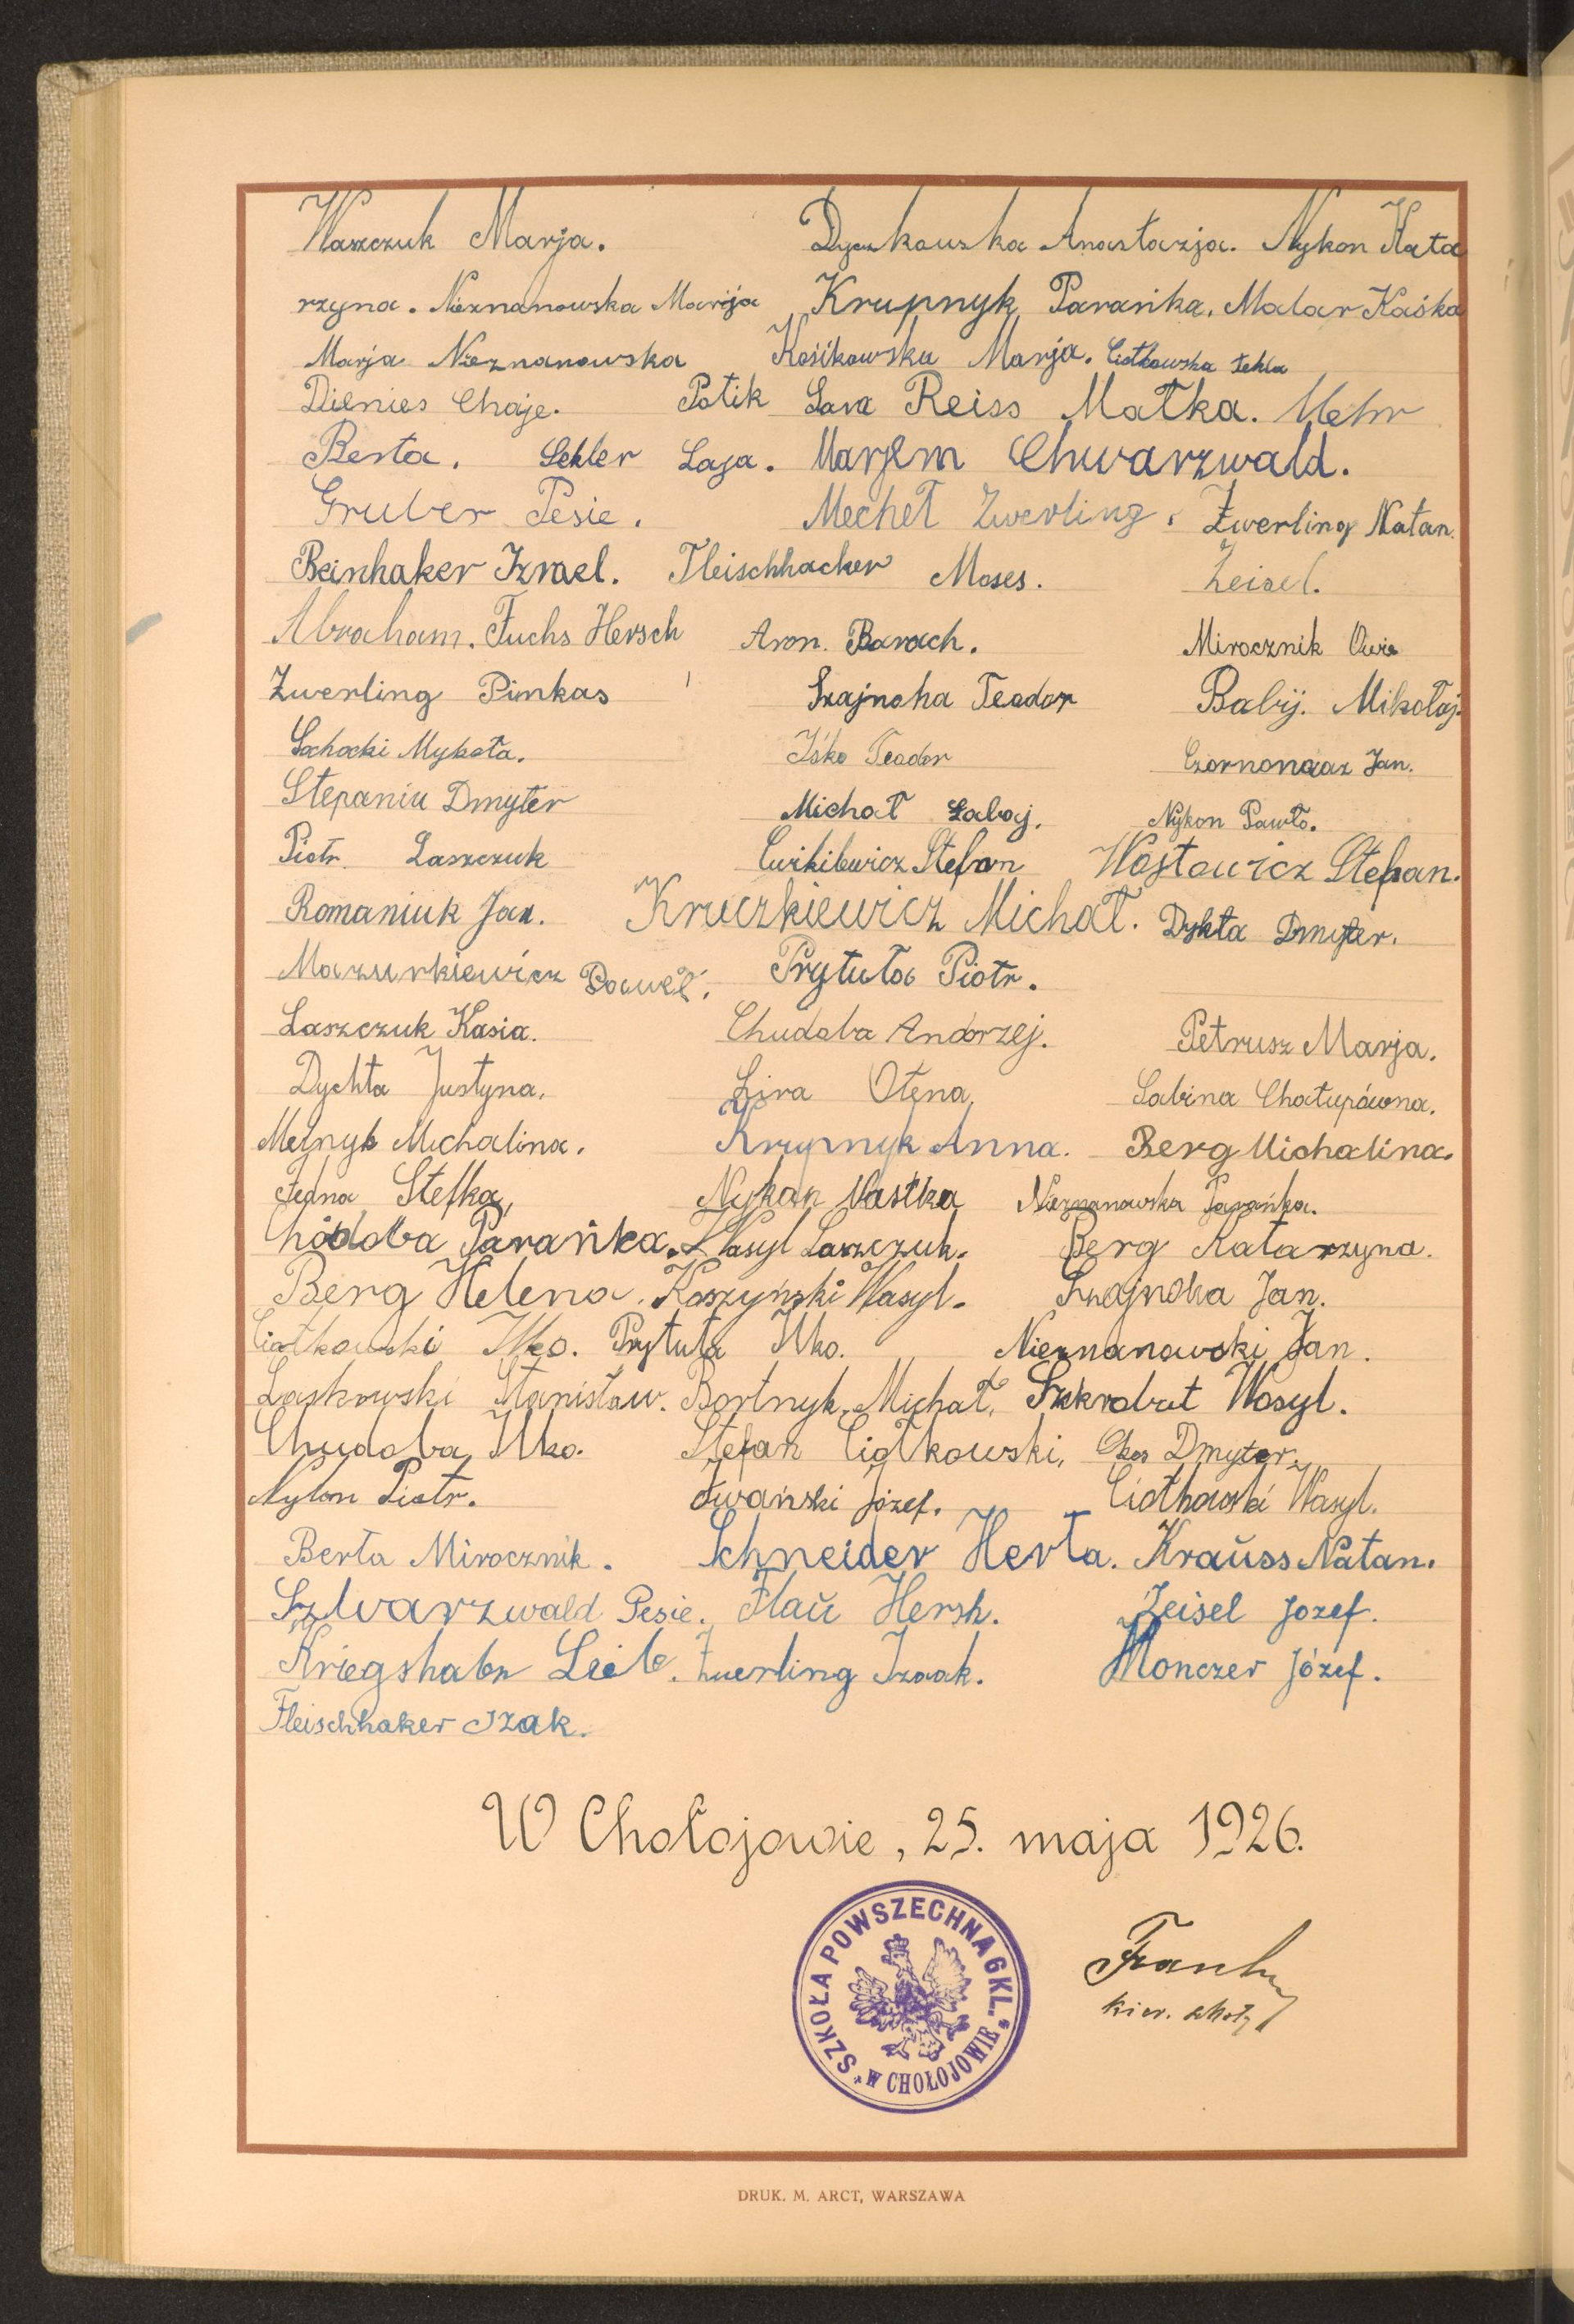 Waszczuk Marja. Dyczkowska Anastazja. Nykon Kata
rzyna. Nieznanowska Marija Krupnyk Parańka. Malar Kaśka
Marja Nieznanowska Kosikowska Marja. Ciotkowska Tekla
Dienies Chaje. Potik Sara Reiss Matka. Mehr
Berta. Sehler Laja. Marjem Chwarzwald.
Gruber Pesie. Mechet Zwerling. Zwerling Natan.
Beinhaker Izrael. Fleischhacker Moses. Zeisel.
Abraham. Fuchs Hersch Aron. Barach. Mirocznik
Zwerling Pinkas Szajnoha Teodor Babij. Mikołaj.
Sochacki Mykoła. Iśko Teodor Jan.
Stepaniu Dmyter Michał Łabaj. Nykon Pawło.
Piotr Laszczuk Cwikilewicz Stefan Wojtowicz Stefan.
Romaniuk Jan. Kruczkiewicz Michał. Dykta Dmyter.
Mazurkiewicz Paweł. Prytuła Piotr.
Laszczuk Kasia. Chudoba Andorzej. Petrusz Marja.
Dychta Justyna. Lira Ołena. Sabina Chałupówna.
Melnyk Michalina. Krupnyk Anna. Berg Michalina.
Jedna Stefka, Nykon Nastka Nieznanowska Parańka.
Chódoba Parańka. Wasyl Laszczuk. Berg Katarzyna.
Berg Helena. Koszyński Wasyl. Szajnoha Jan.
Ciotkowski Ilko. Prytuła Ilko. Nieznanowski Jan.
Laskowski Stanisław. Bortnyk Michał. Szkrobut Wasyl.
Chudoba Ilko. Stefan Ciołkowski, Dmyter.
Nykon Piotr. Iwański Józef. Ciotkowski Wasyl.
Berta Mirocznik. Schneider Herta. Kraüss Natan.
Szwarzwald Pesie. Flaü Hersh. Zeisel Jozef.
Kriegshaber Leib. Zwerling Izaak. Monczer Józef.
Fleischhaker Izak.
W Chołojowie, 25. maja 1926.
SZKOŁA POWSZECHNA 6 KL. * W CHOŁOJOWIE *
kier. szkoły
DRUK. M. ARCT, WARSZAWA